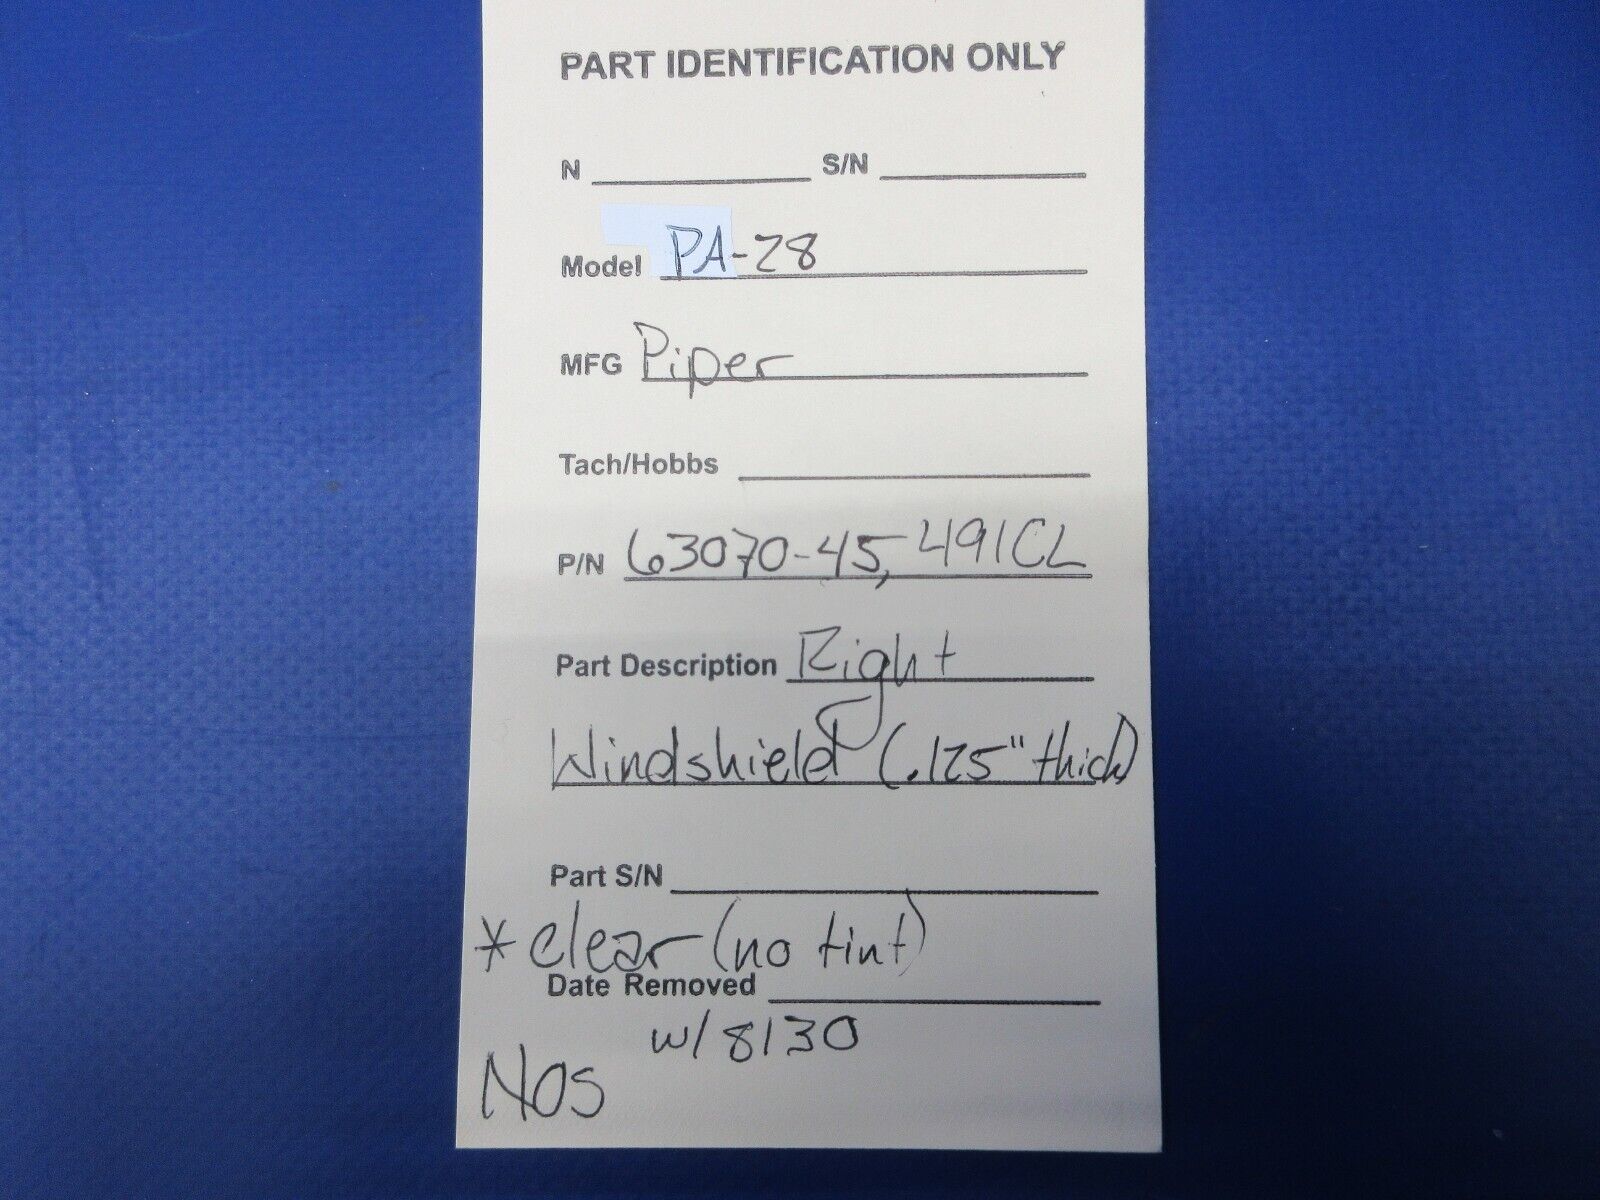 PART IDENTIFICATION ONLY
N S/N
Model PA-28
MFG Piper
Tach/Hobbs
P/N 63070-45, 491CL
Part Description Right
Windshield (.125" thick)
Part S/N
* clear (no tint)
Date Removed
w/ 8130
NOS